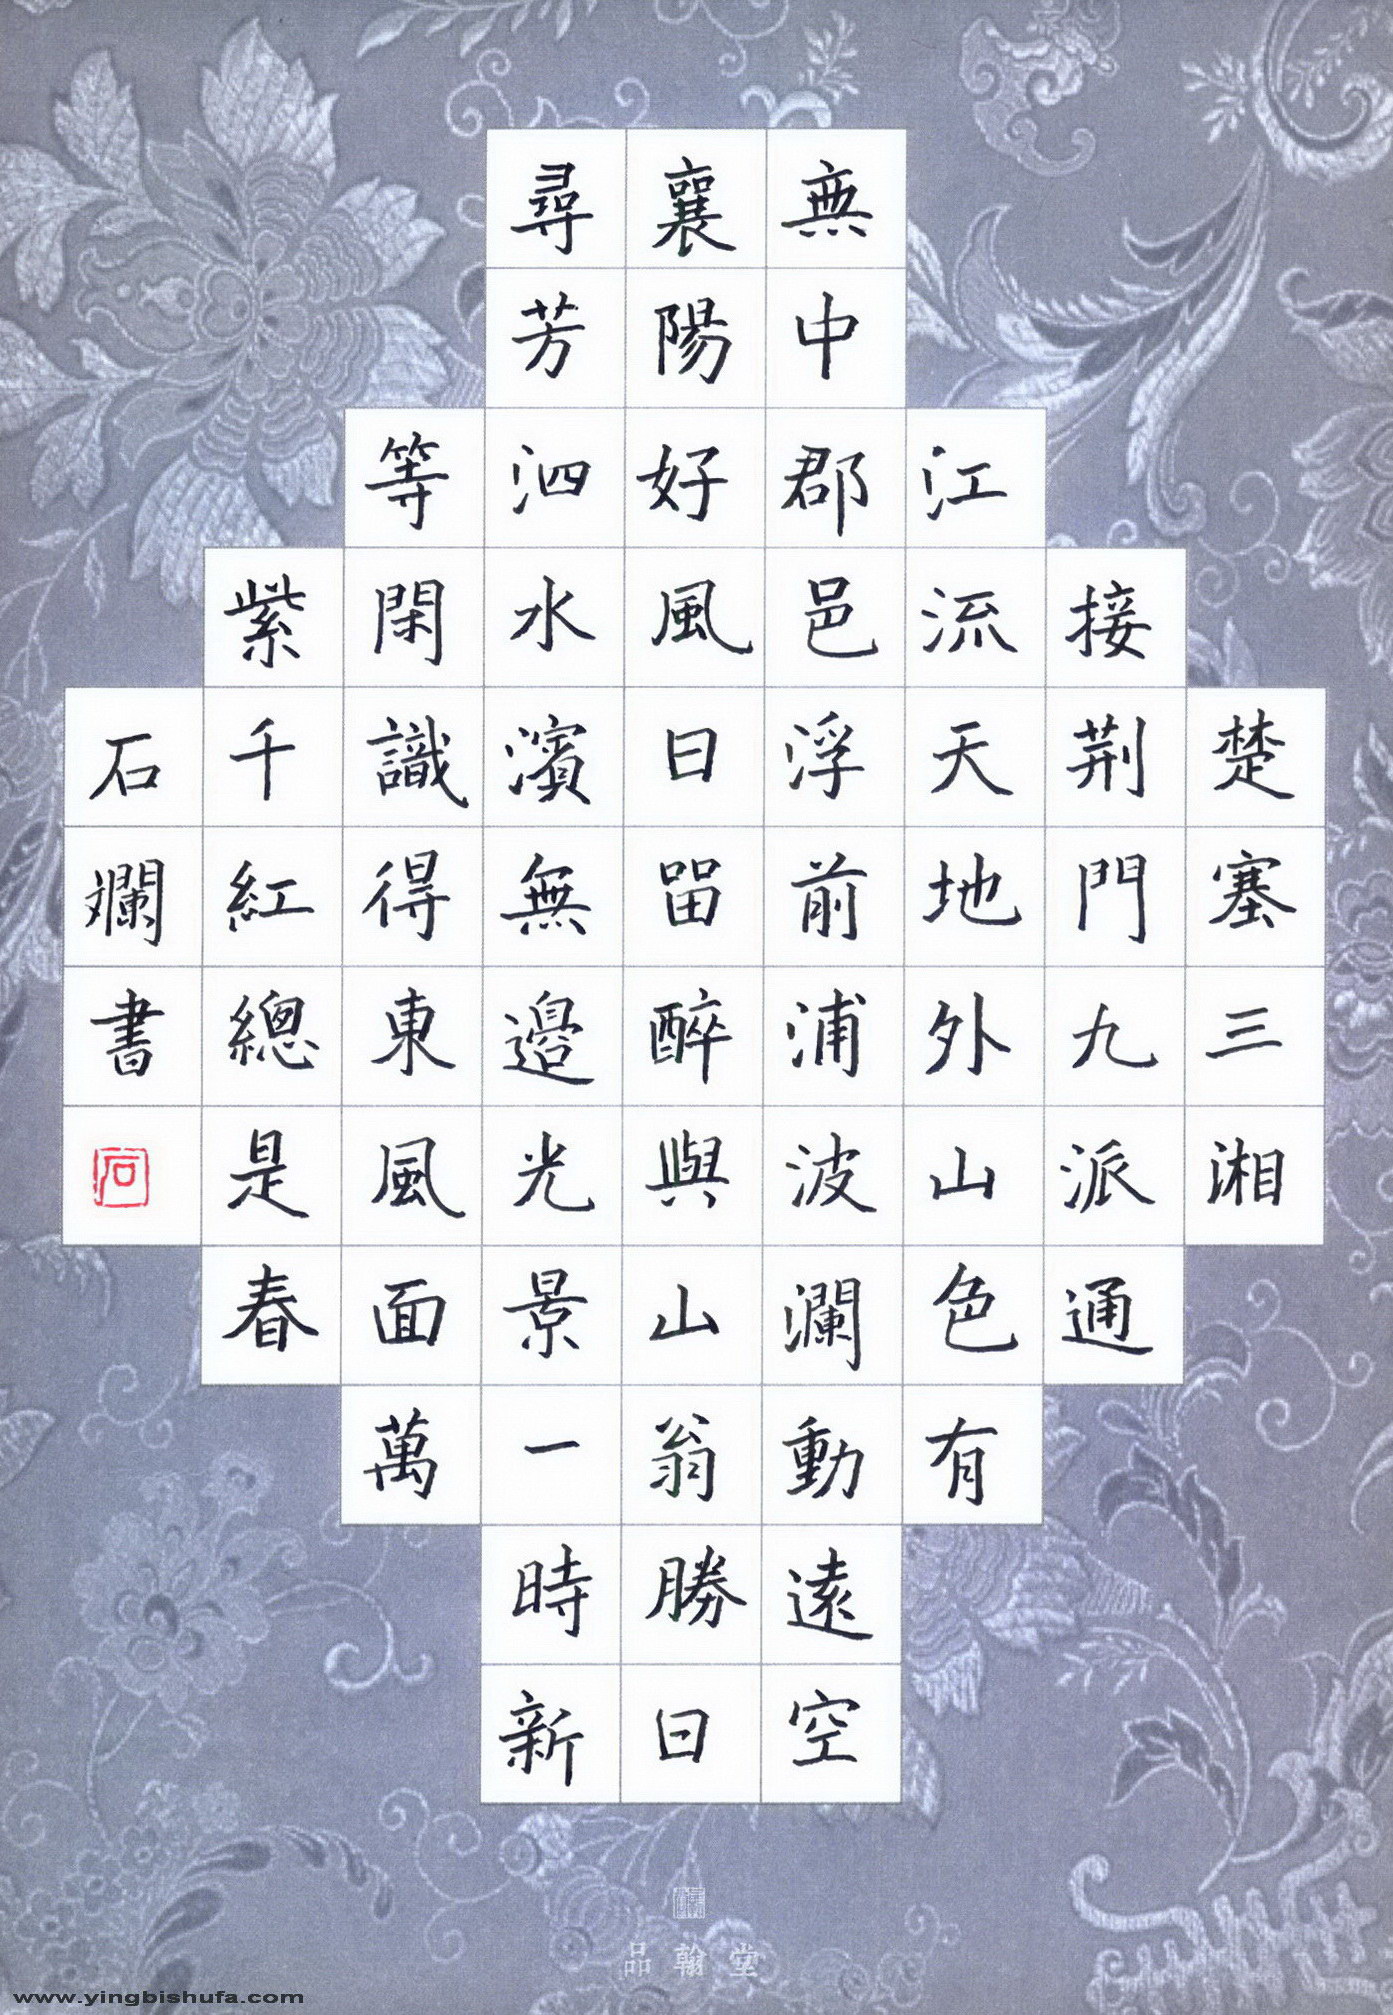 楚塞三湘
接荆門九派通
江流天地外山色有
無中郡邑浮前浦波瀾動遠空
襄陽好風日畱醉與山翁勝日
尋芳泗水濱無邊光景一時新
等閑識得東風面萬
紫千紅總是春
石斕書
石
品翰堂
www.yingbishufa.com